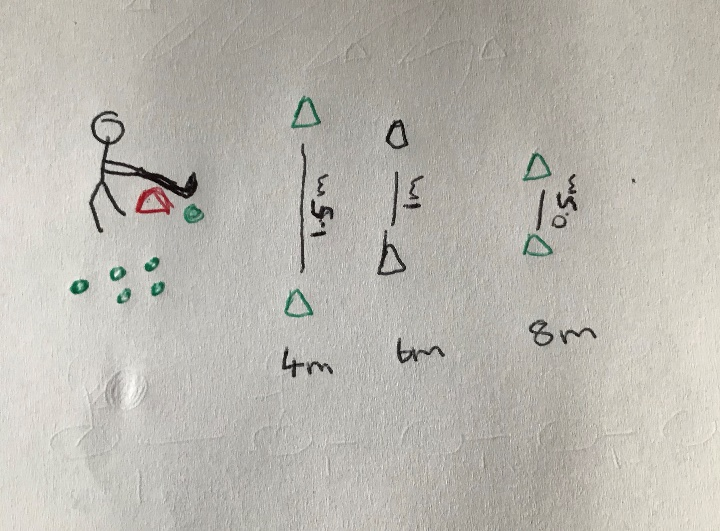 1.5m
1m
0.5m
4m
6m
8m